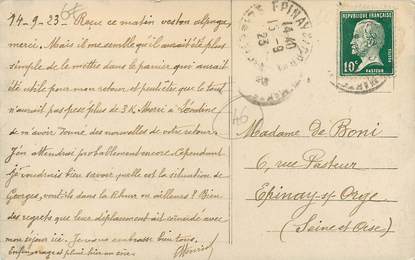 14-9-23. Reçu ce matin veston alpaga,
merci. Mais il me semble qu'il aurait été plus
simple de le mettre dans le panier qui aurait
été utile pour mon retour et peut être que le tout
n'aurait pas pesé plus de 3 K. Merci à
de m'avoir donné des nouvelles de votre retour.
J'en attendrai probablement encore. Cependant
je voudrais bien savoir quelle est la situation de
Georges, est-il dans la Ruhr ou ailleurs? Bien
des regrets que leur déplacement ait coïncidé avec
mon séjour ici. Je vous embrasse bien tous.
Enfin, orage et pluie hier au soir.
EPINAY
14 40
15 -9
23
REPUBLIQUE FRANÇAISE
10c
POSTES
PASTEUR
Madame De Boni
6, rue Pasteur
Epinay-s/-Orge
(Seine et Oise)